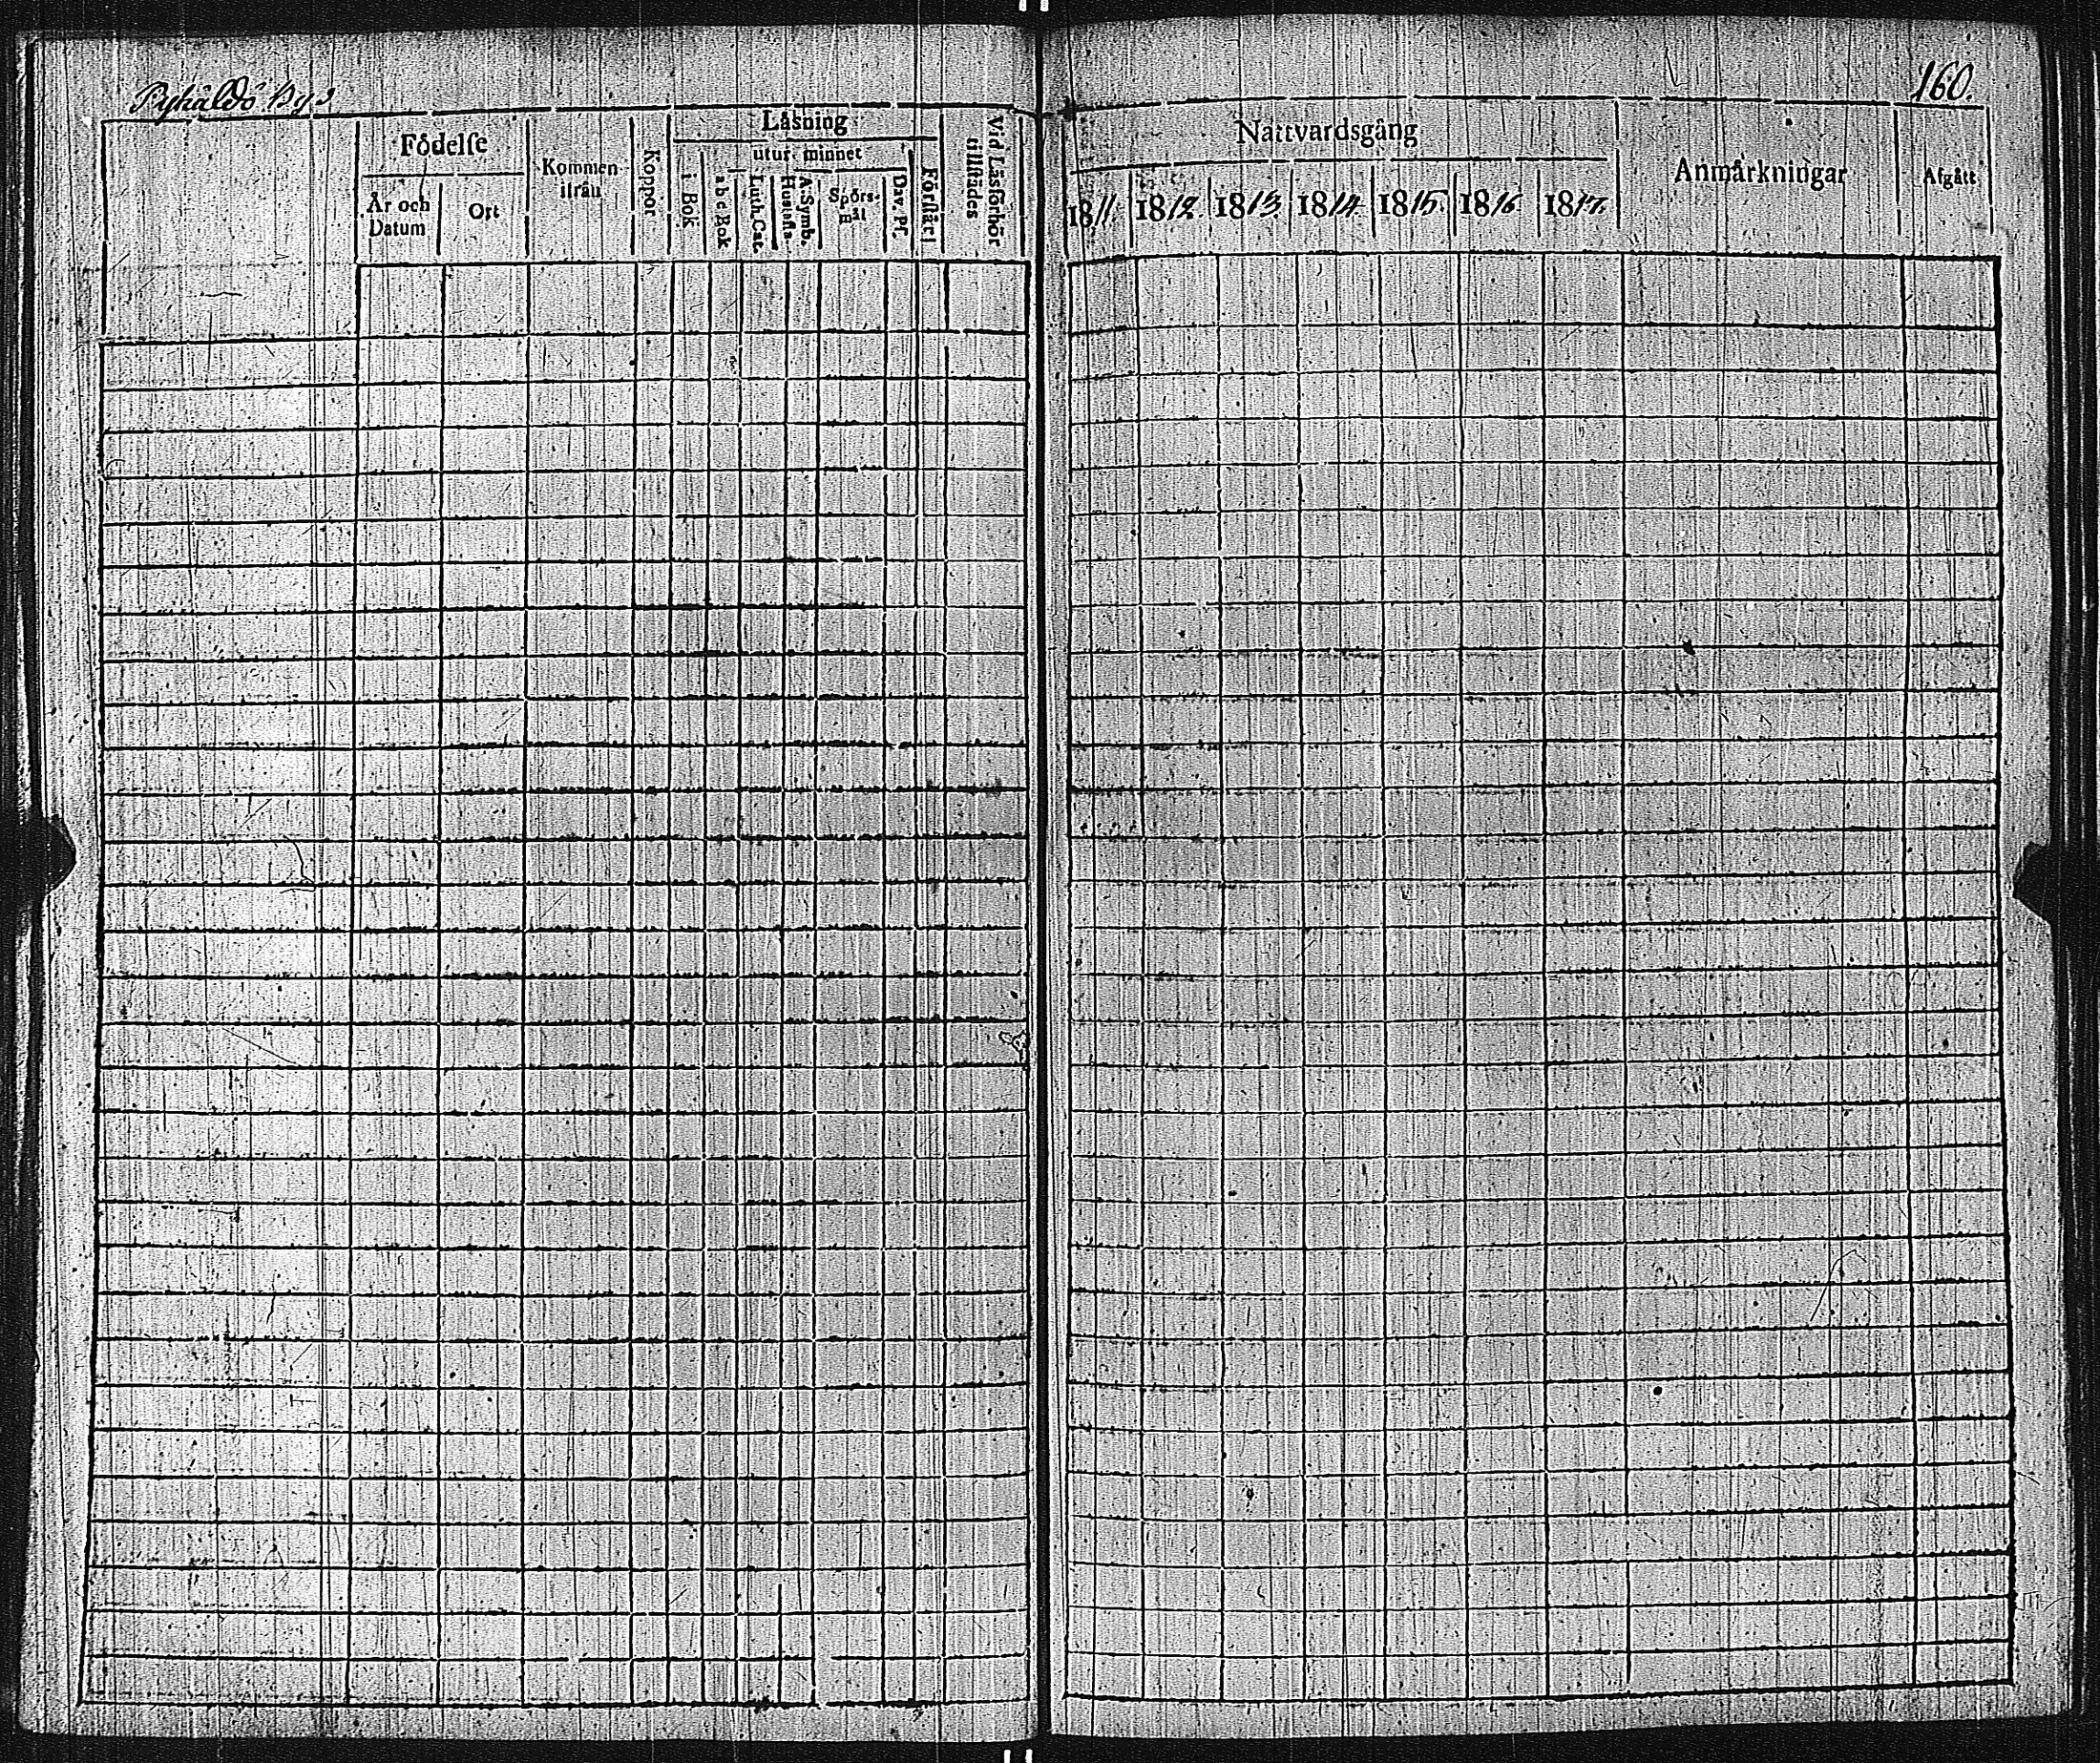 160.
Födelse
År och Datum
Ort
Kommen ifrån
Koppor
Läsning
i Bok
utur minnet
a b c Bok
Luth. Cat.
Hustafla
A. Symb.
Spörs-mål
Dav. Ps.
Förstår
Vid Läsförhör tillstädes
Nattvardsgång
1811. 1812. 1813. 1814. 1815. 1816 1817.
Anmärkningar
Afgått